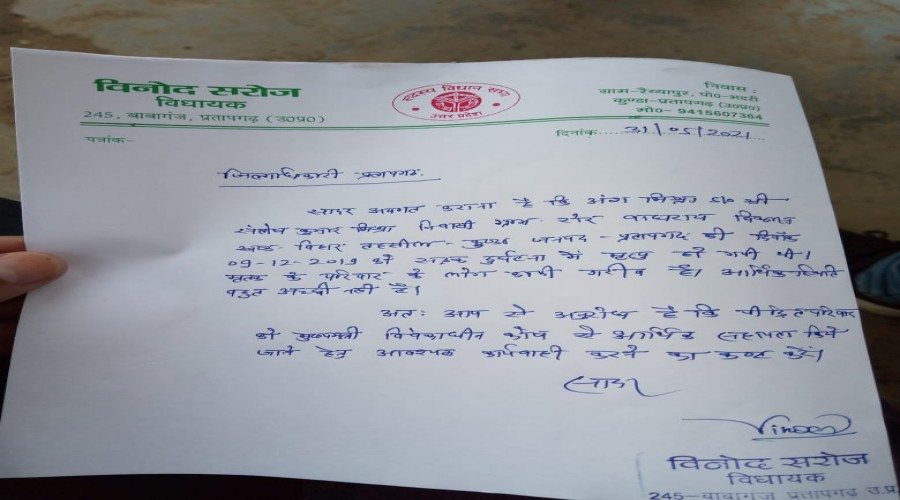 विनोद सरोज
विधायक
245, बाबागंज, प्रतापगढ़ (उ०प्र०)
सदस्य विधान सभा
उत्तर प्रदेश
निवास :
ग्राम-रैय्यापुर, पो०-भदरी
कुण्डा-प्रतापगढ़ (उ०प्र०)
मो०- 9415607364
पत्रांक-
दिनांक 31/05/2021
जिलाधिकारी प्रतापगढ़.
सादर अवगत कराना है कि अंश मिश्रा S/o श्री
कुमार मिश्रा निवासी ग्राम शोर बाघराय विकास
खण्ड बिहार तहसील- कुण्डा जनपद- प्रतापगढ़ की दिनाँक
09-12-2019 को सड़क दुर्घटना में मृत्यु हो गयी थी।
मृतक के परिवार के लोग काफी गरीब हैं। आर्थिक स्थिति
बहुत अच्छी नहीं है।
अतः आप से अनुरोध है कि पीड़ित परिवार
को मुख्यमंत्री विवेकाधीन कोष से आर्थिक सहायता दिये
जाने हेतु आवश्यक कार्यवाही करने का कष्ट करें।
सादर
Vinod
विनोद सरोज
विधायक
245-बाबागंज प्रतापगढ़ उ.प्र.